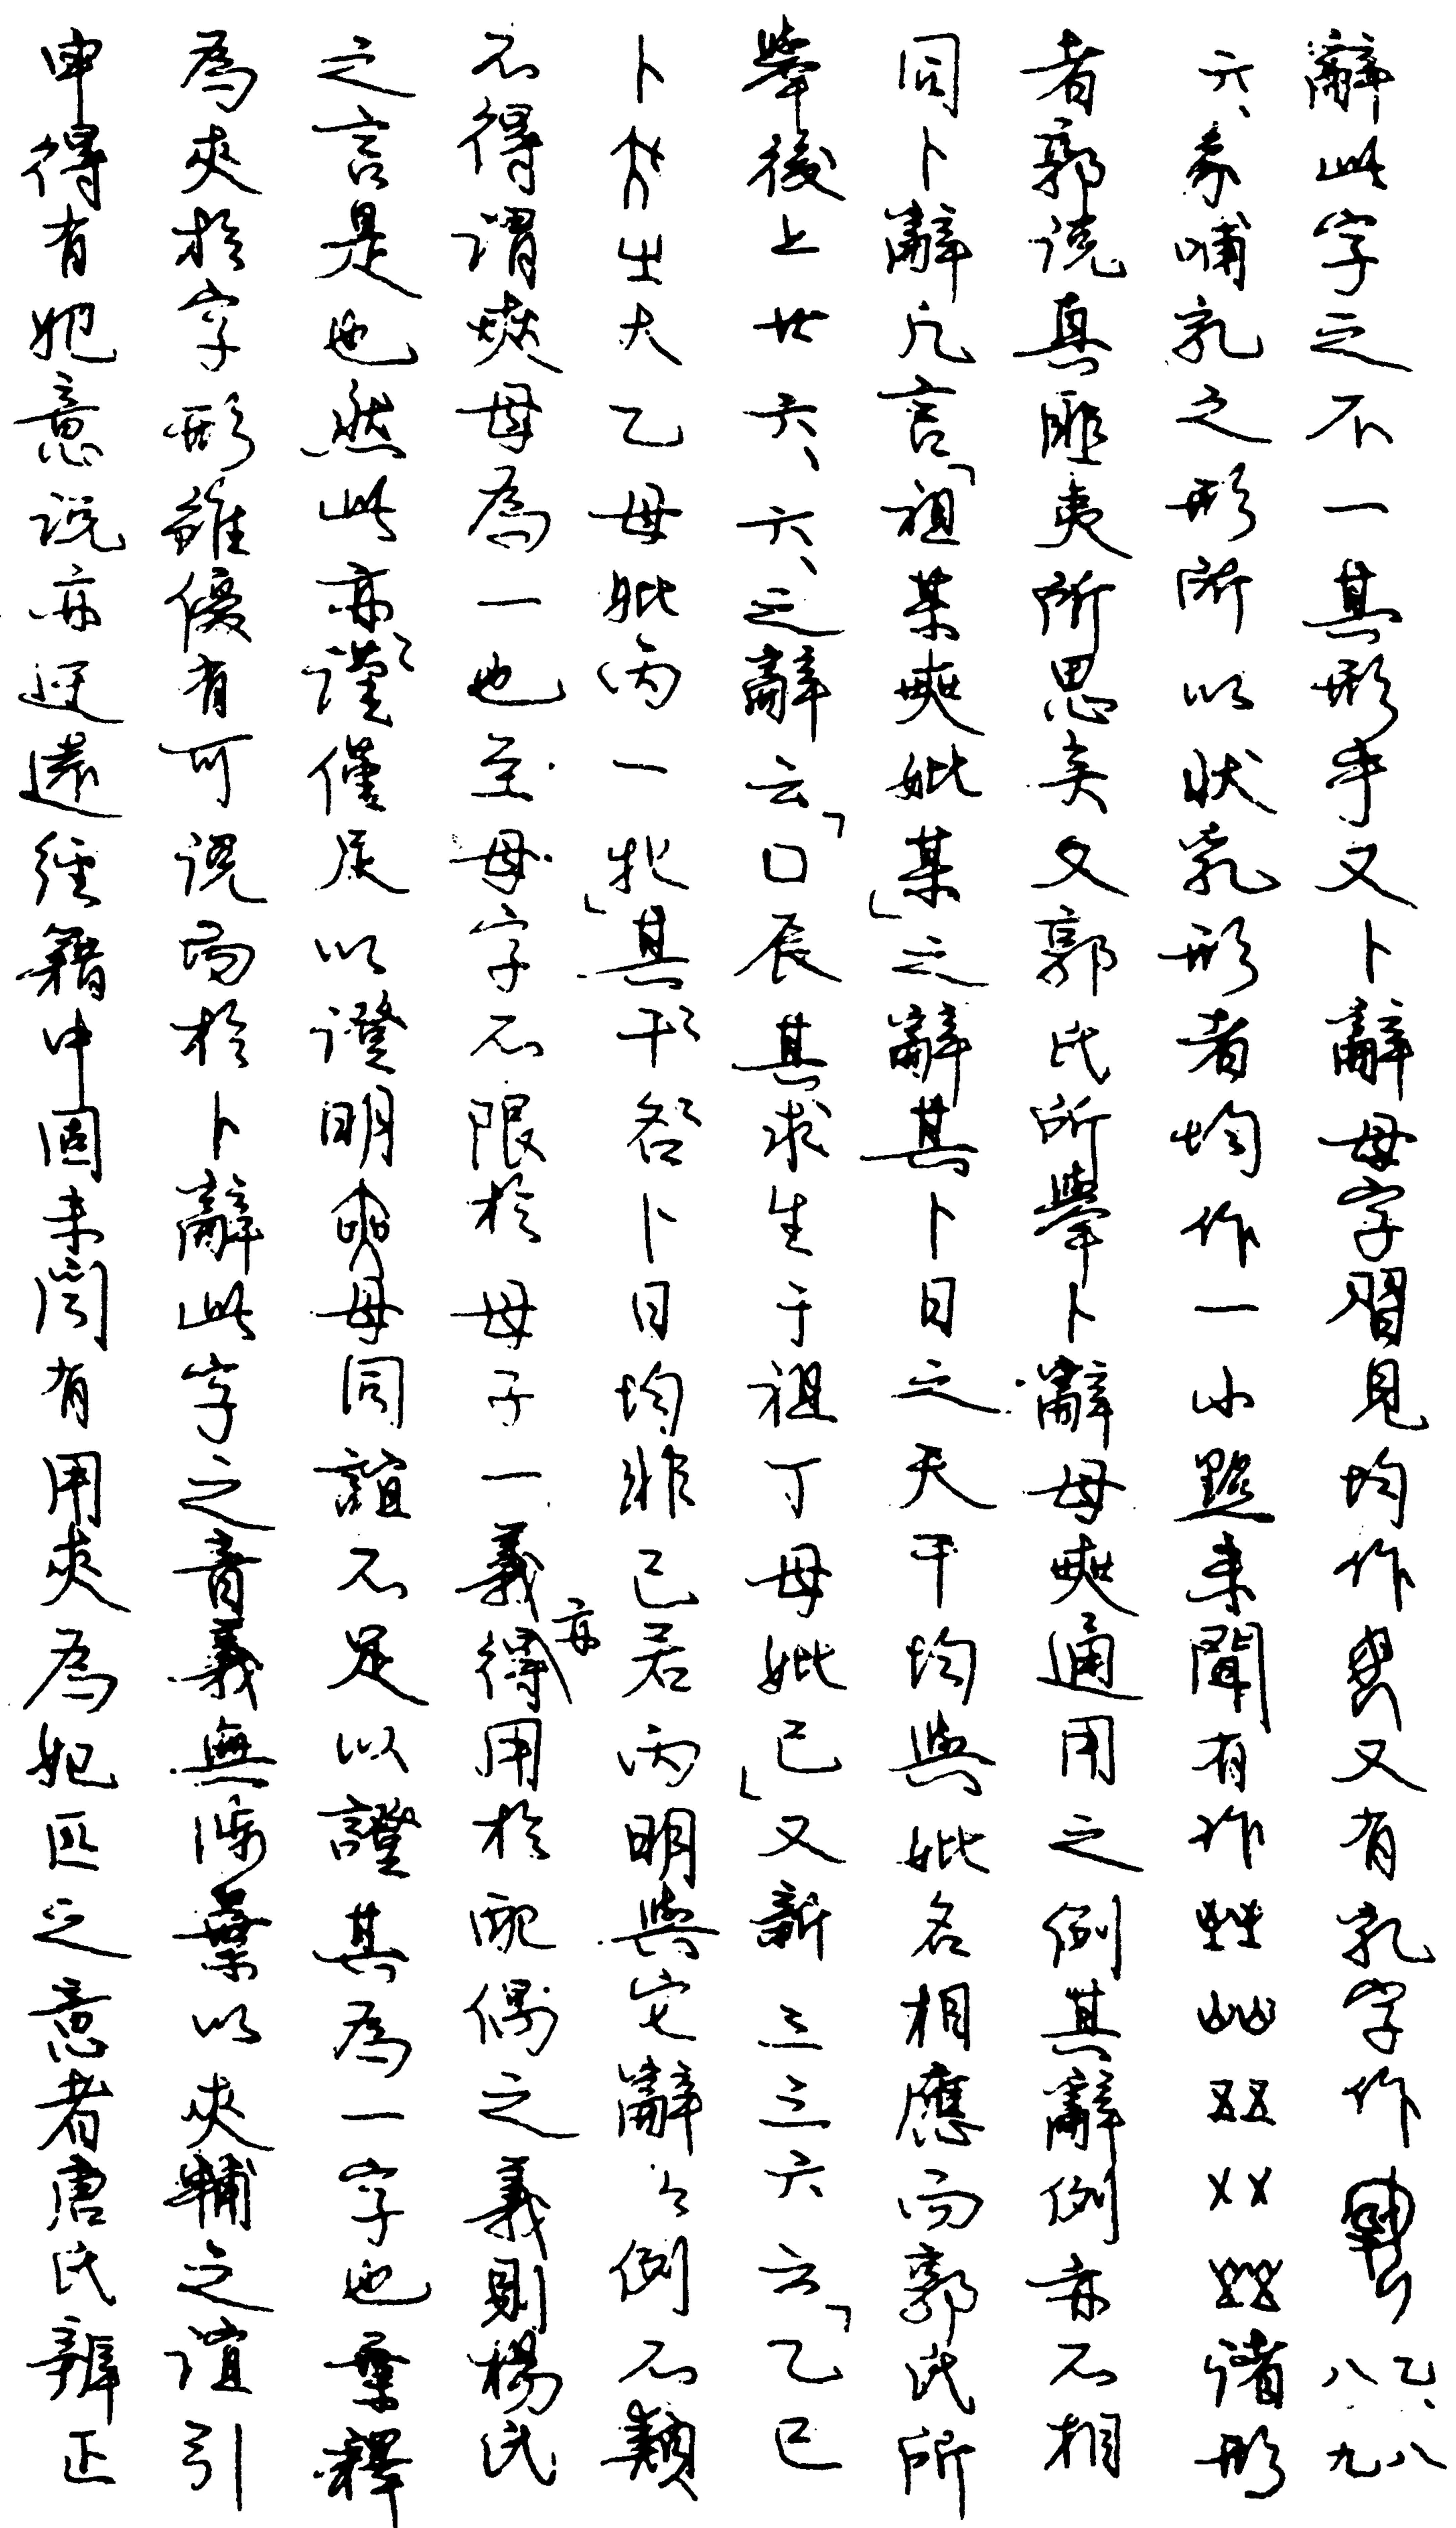 辭此字之不一其形乎又卜辭母字習見均作又有乳字作乙、八八九
六、象哺乳之形所以狀乳形者均作一小點未聞有作諸形
者郭説真匪夷所思矣又郭氏所舉卜辭母奭通用之例其辭例亦不相
同卜辭凡言「祖某奭妣某」之辭其卜日之天干均與妣名相應而郭氏所
舉後上廿六、六、之辭云「口辰其求生于祖丁母妣己」又新三三六云「乙巳
卜㞢大乙母妣丙一牝」其干名卜日均非己若丙明與它辭之例不類
不得謂奭母爲一也至母字不限於母子一義亦得用於配偶之義則楊氏
之言是也然此亦謹僅足以證明奭母同誼不足以證其爲一字也葉釋
爲夾於字形雖優有可説而於卜辭此字之音義無涉葉以夾輔之誼引
申得有妃意説亦迂遠經籍中固未聞有用夾爲妃匹之意者唐氏辨正